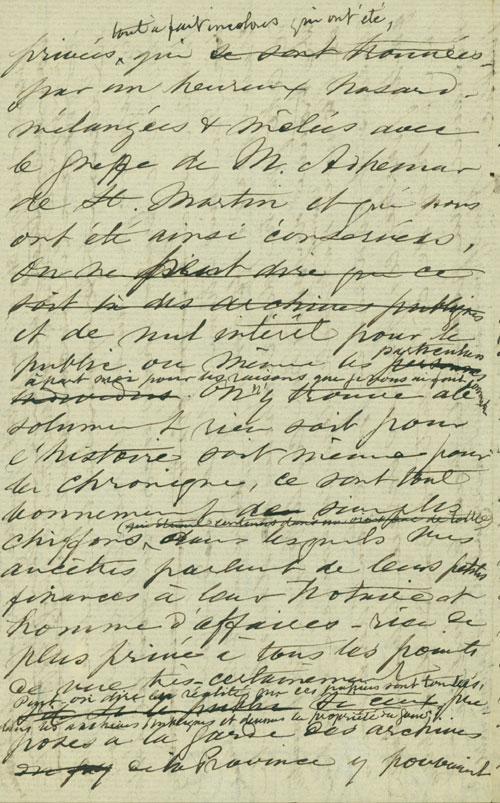 tout à fait incolores qui ont été,
privés, qui se sont trouvées
par un heureux hasard
mélangées & mêlées avec
le greffe de M. Adhemar
de St. Martin et qui nous
ont été ainsi conservées,
On ne peut dire que ce
soit là des archives publiques
et de nul intérêt pour le
particuliers
public ou même les
à part moi pour les raisons que je vous ai fait
individus. On n'y trouve ab
solument rien soit pour
l'histoire soit même pour
la chronique, ce sont tout
bonnement des simples
(qui étaient contenus dans un de toile)
chiffons, dans lesquels nos
ancêtres parlent de leurs petites
finances à leur Notaire et
homme d'affaires - rien de
plus privé à tous les points
de vue très-certainement
Peut on dire en réalité que ces papiers sont
dans les archives publiques et devenus la propriété du
posés à la garde des archives
de la Province y pouvaient